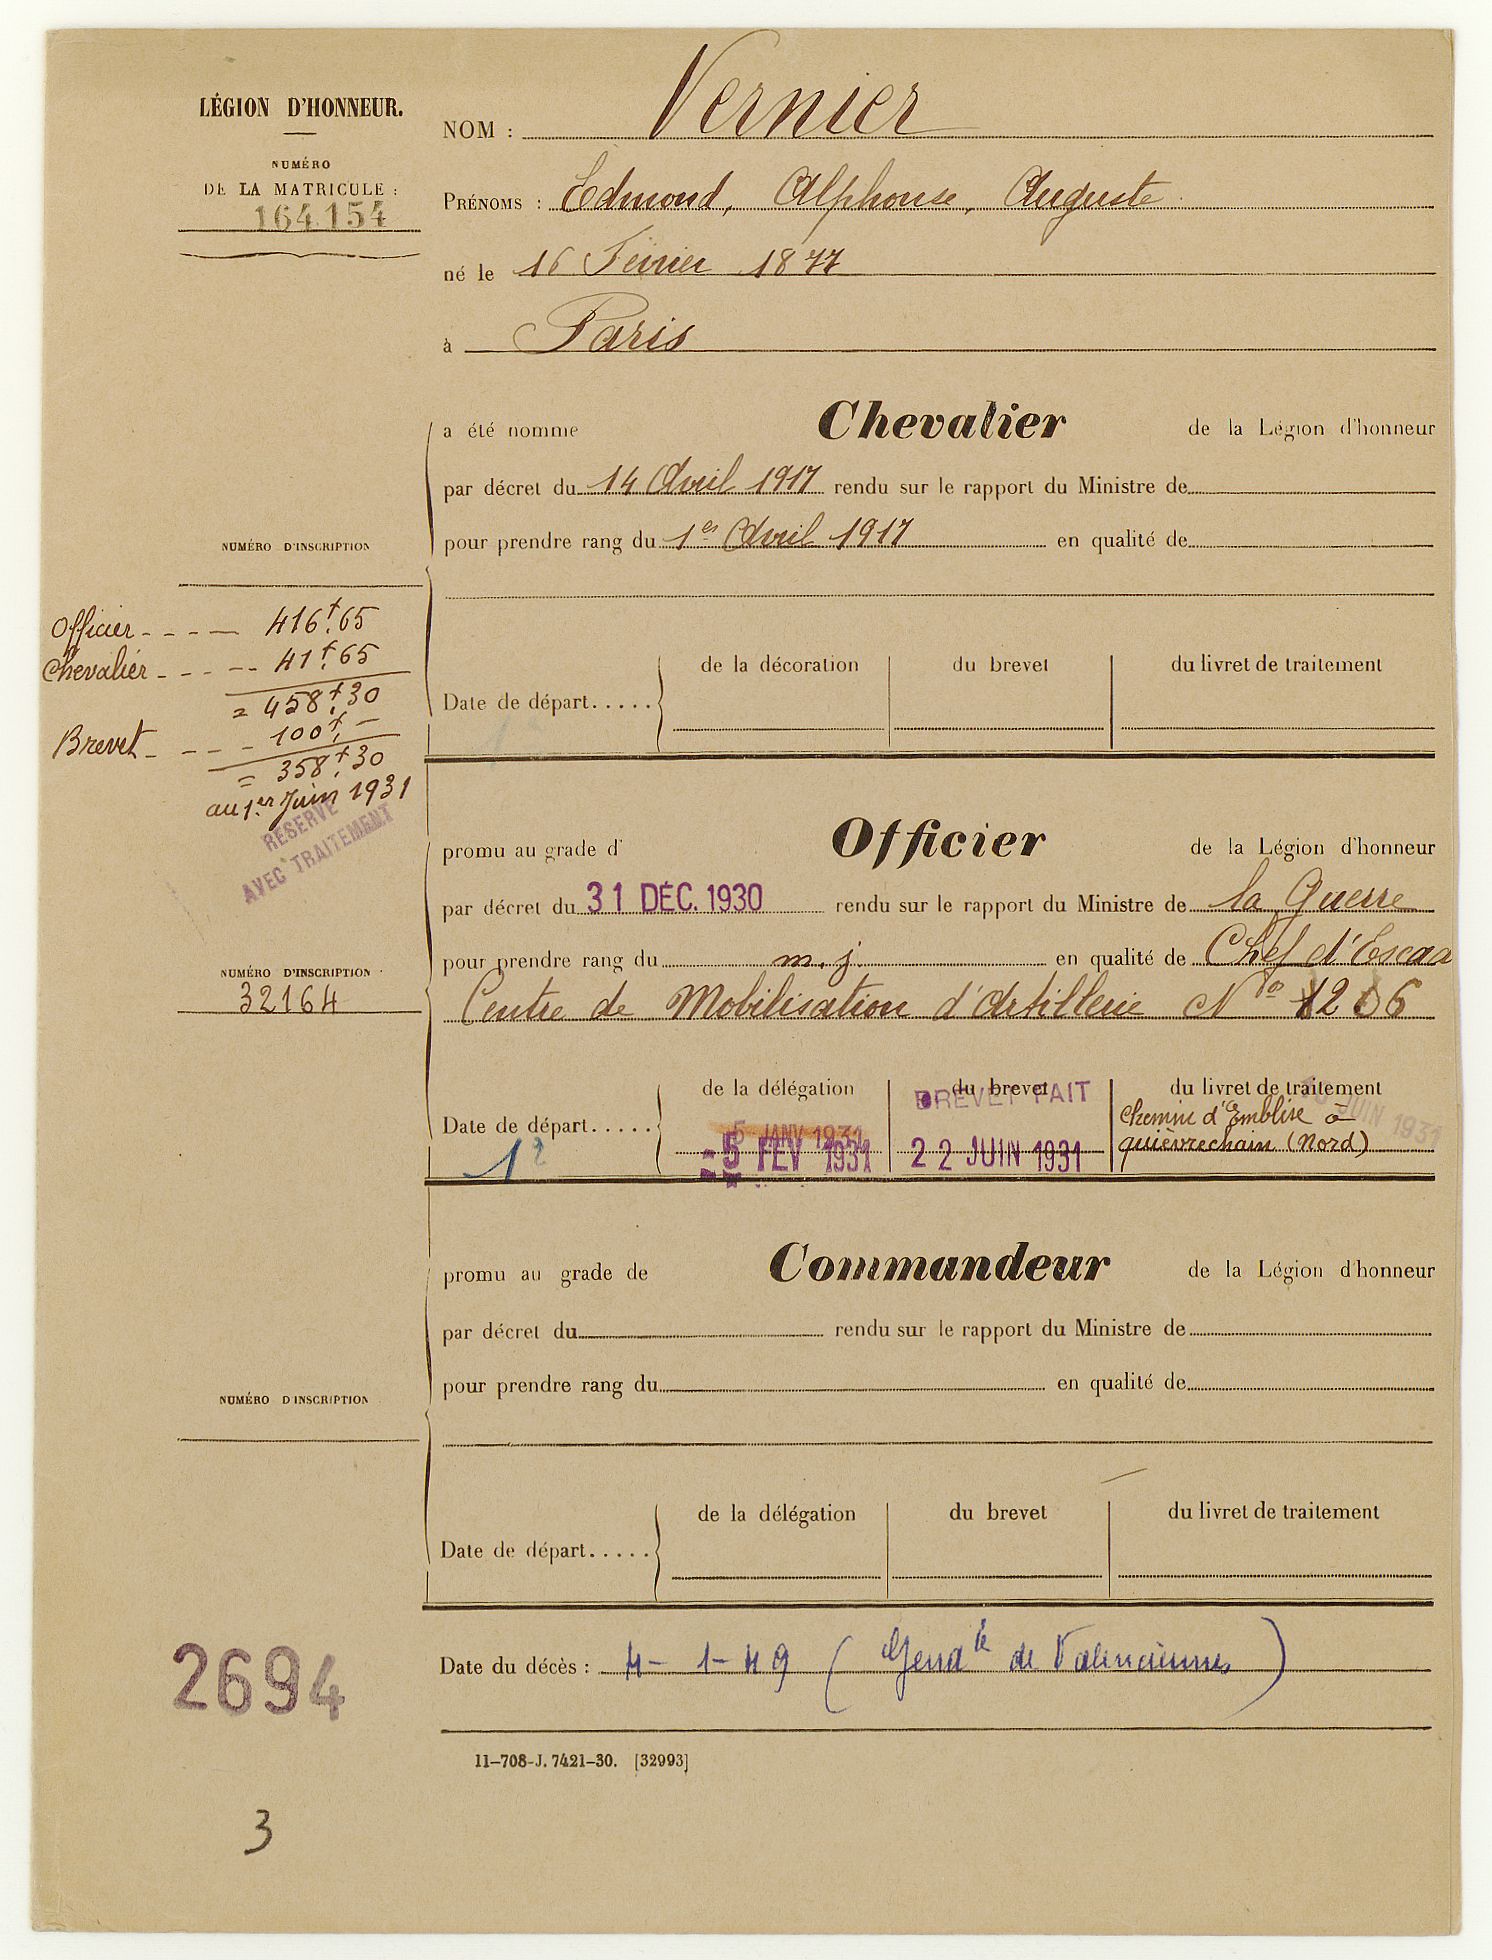 LÉGION D'HONNEUR.
NUMÉRO
DE LA MATRICULE :
164.154
NOM : Vernier
PRÉNOMS : Edmond, Alphonse, Auguste
né le 16 Février 1877
à Paris
a été nommé Chevalier de la Légion d'honneur
par décret du 14 Avril 1917 rendu sur le rapport du Ministre de
pour prendre rang du 1er Avril 1917 en qualité de
NUMÉRO D'INSCRIPTION
Officier - - - - 416f.65
Chevalier - - - - - 41f.65
= 458f.30
Brevet - - - - 100f. -
= 358f.30
au 1er Juin 1931
RÉSERVE
AVEC TRAITEMENT
Date de départ..... de la décoration du brevet du livret de traitement
promu au grade d' Officier de la Légion d'honneur
par décret du 31 DÉC. 1930 rendu sur le rapport du Ministre de la Guerre
pour prendre rang du m. j. en qualité de Chef d'Escad
Centre de Mobilisation d'Artillerie N°
NUMÉRO D'INSCRIPTION
32164
de la délégation du brevet du livret de traitement
BREVET FAIT
JUIN 1931
Date de départ.....
5 JANV 1931
-5 FEV 1931
22 JUIN 1931
Chemin d'Emblise à
quiévrechain (Nord)
promu au grade de Commandeur de la Légion d'honneur
par décret du rendu sur le rapport du Ministre de
pour prendre rang du en qualité de
NUMÉRO D'INSCRIPTION
Date de départ..... de la délégation du brevet du livret de traitement
Date du décès : 4-1-49 (Gendie de Valenciennes)
2694
11-708-J. 7421-30. [32993]
3